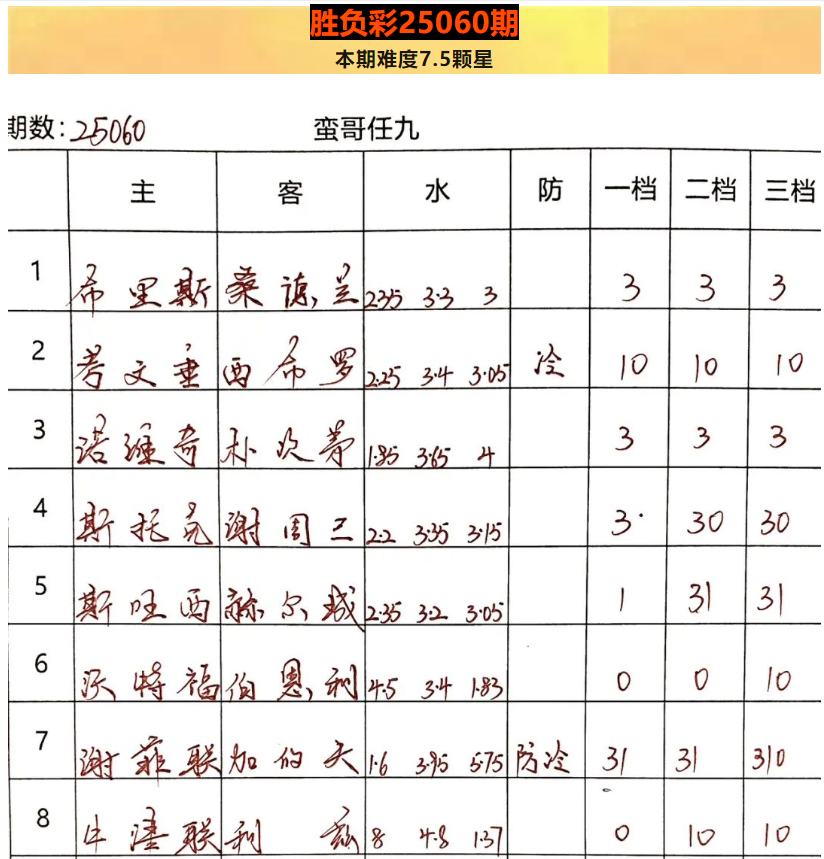 胜负彩25060期
本期难度7.5颗星
期数:25060 蛮哥任九
主 客 水 防 一档 二档 三档
1 希里斯 桑德兰 2.35 3.3 3 3 3 3
2 考文垂 西布罗 2.25 3.4 3.05 冷 10 10 10
3 诺维奇 朴次茅 1.85 3.65 4 3 3 3
4 斯托克 谢周三 2.2 3.35 3.15 3 30 30
5 斯旺西 赫尔城 2.35 3.2 3.05 1 31 31
6 沃特福 伯恩利 4.5 3.4 1.83 0 0 10
7 谢菲联 加的夫 1.6 3.95 5.75 防冷 31 31 310
8 牛津联 利兹 8 4.8 1.37 0 10 10